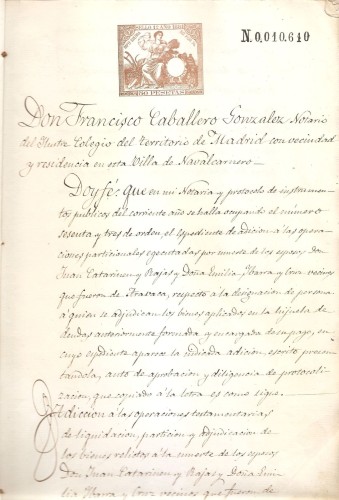 N.0,010.640
100 PESETAS
Don Francisco Caballero Gonzalez Notario
del Ilustre Colegio del Territorio de Madrid con vecindad
y residencia en esta Villa de Navalcarnero
Doy fé: que en mi Notaria y protocolo de instrumen-
tos publicos del corriente año se halla ocupando el número
sesenta y tres de orden, el Espediente de adicion a las opera-
ciones particionales ejecutadas por muerte de los esposos Don
Juan Catarineu y Rajas y Doña Emilia Ybarra y Cruz vecinos
que fueron de Aravaca, respecto á la designacion de persona
á quien se adjudican los bienes aplicados en la hijuela de
deudas anteriormente formada y encargada de su pago, en
cuyo espediente aparece la indicada adicion, escrito presen-
tandola, auto de aprobacion y diligencia de protocoli-
zacion, que copiado á la letra es como sigue.
Adiccion a las operaciones testamentarias
de liquidacion, particion y adjudicacion de
los bienes relictos a la muerte de los esposos
Don Juan Catarineu y Rajas y Doña Emi-
lia Ybarra y Cruz vecinos que fueron de